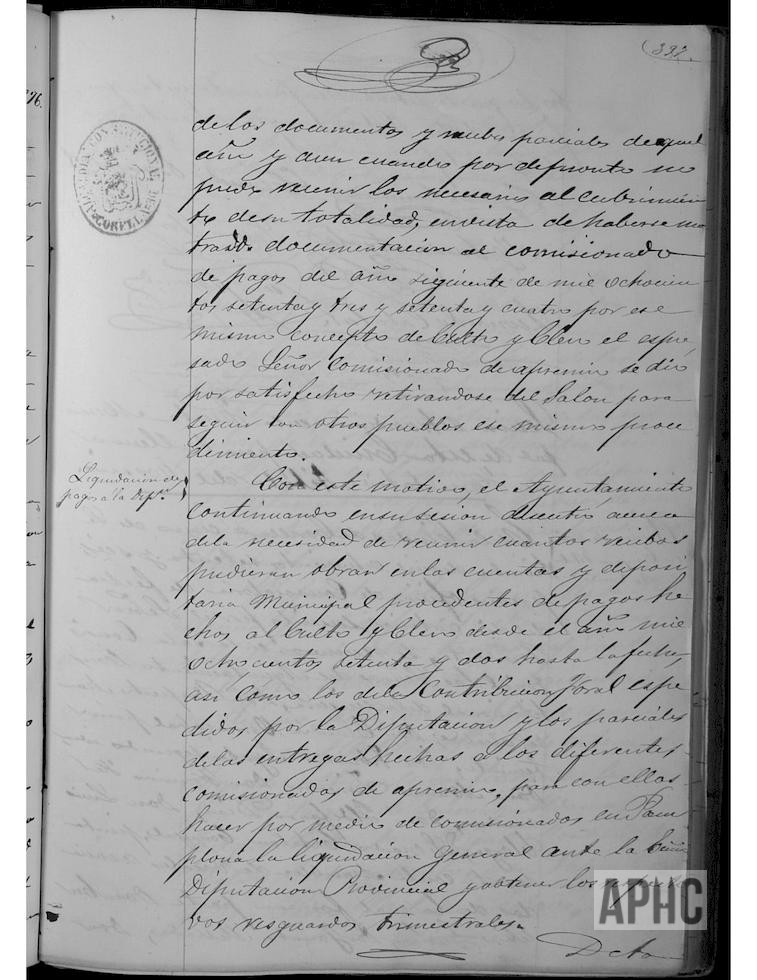 397.
76.
ALCALDIA CONSTITUCIONAL
CORELLA
de los documentos y recibos parciales de aquel
año y aun cuando por depronto no
pudo reunir los necesarios al cubrimien
to desu totalidad, envista de haberse mos
trado documentacion al comisionado
de pagos del año siguiente de mil ochocien
tos setenta y tres y setenta y cuatro por ese
mismo concepto de Culto y Clero el espre
sado Señor Comisionado de apremio se dio
por satisfecho retirandose del Salon para
seguir con otros pueblos ese mismo proce
dimiento.
Liquidacion de
pagos a la Dip.n
Con este motivo, el Ayuntamiento
continuando ensu sesion discutió acerca
dela necesidad de reunir cuantos recibos
pudieran obrar enlas cuentas y deposi
taria Municipal procedentes de pagos he
chos al Culto y Clero desde el año mil
ochocientos setenta y dos hasta la fecha,
asi como los dela Contribucion foral espe
didos por la Diputacion y los parciales
delas entregas hechas a los diferentes
comisionados de apremio, para con ellos
hacer por medio de comisionados en Pam
plona la liquidacion General ante la
Diputacion Provincial y obtener los respecti
vos resguardos trimestrales.
APHC